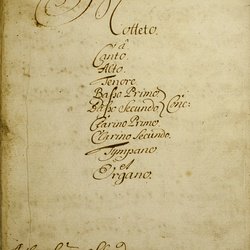 Motteto.
â
Canto.
Alto.
Tenore.
Basso Primo.
Basso Secundo Conc:
Clarino Primo.
Clarino Secundo.
Tympano
et
Organo.